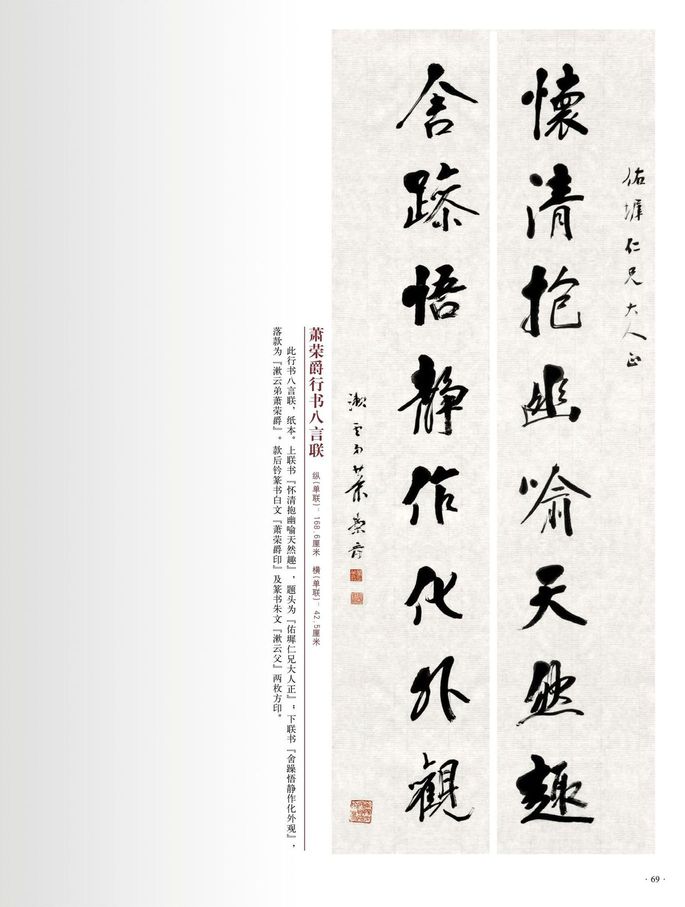 佑墀仁兄大人正
懷清抱幽喻天然趣
舍躁悟靜作化外觀
漱云弟萧荣爵
萧荣爵行书八言联
纵(单联)－168.6厘米 横(单联)－42.5厘米
此行书八言联，纸本。上联书『怀清抱幽喻天然趣』，题头为『佑墀仁兄大人正』；下联书『舍躁悟静作化外观』，
落款为『漱云弟萧荣爵』。款后钤篆书白文『萧荣爵印』及篆书朱文『漱云父』两枚方印。
· 69 ·